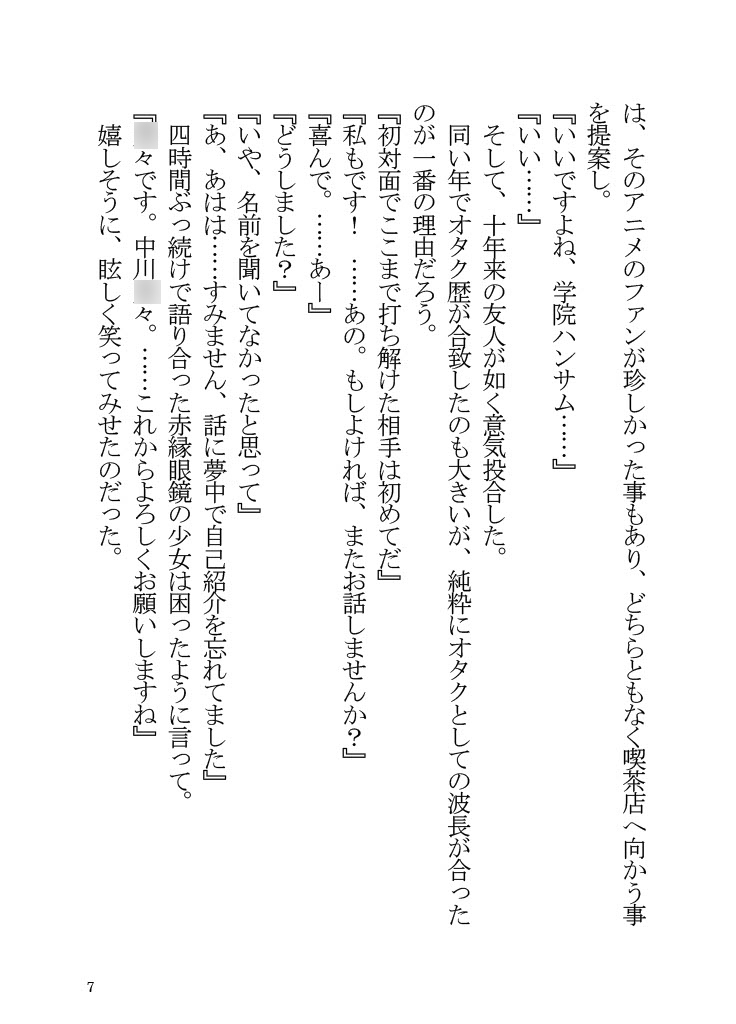 は、そのアニメのファンが珍しかった事もあり、どちらともなく喫茶店へ向かう事
を提案し。
『いいですよね、学院ハンサム……』
『いい……』
そして、十年来の友人が如く意気投合した。
同い年でオタク歴が合致したのも大きいが、純粋にオタクとしての波長が合った
のが一番の理由だろう。
『初対面でここまで打ち解けた相手は初めてだ』
『私もです！　……あの。もしよければ、またお話しませんか？』
『喜んで。……あー』
『どうしました？』
『いや、名前を聞いてなかったと思って』
『あ、あはは……すみません、話に夢中で自己紹介を忘れてました』
四時間ぶっ続けで語り合った赤縁眼鏡の少女は困ったように言って。
『々です。中川々。……これからよろしくお願いしますね』
嬉しそうに、眩しく笑ってみせたのだった。
7